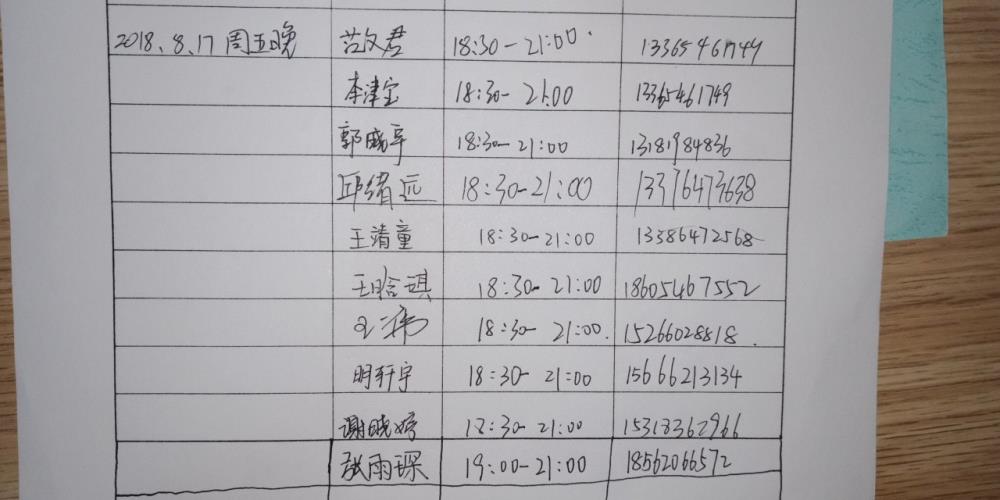 2018.8.17 周五晚 范文君 18:30-21:00 13365461749
李津宝 18:30-21:00 13365461749
郭晓宇 18:30-21:00 13181984836
邱绪远 18:30-21:00 13376473638
王靖童 18:30-21:00 13386472568
王晗琪 18:30-21:00 18605467552
18:30-21:00. 15266028818.
明轩宇 18:30-21:00 15666213134
谢晓婷 18:30-21:00 15318362966
张雨琛 19:00-21:00 18562066572